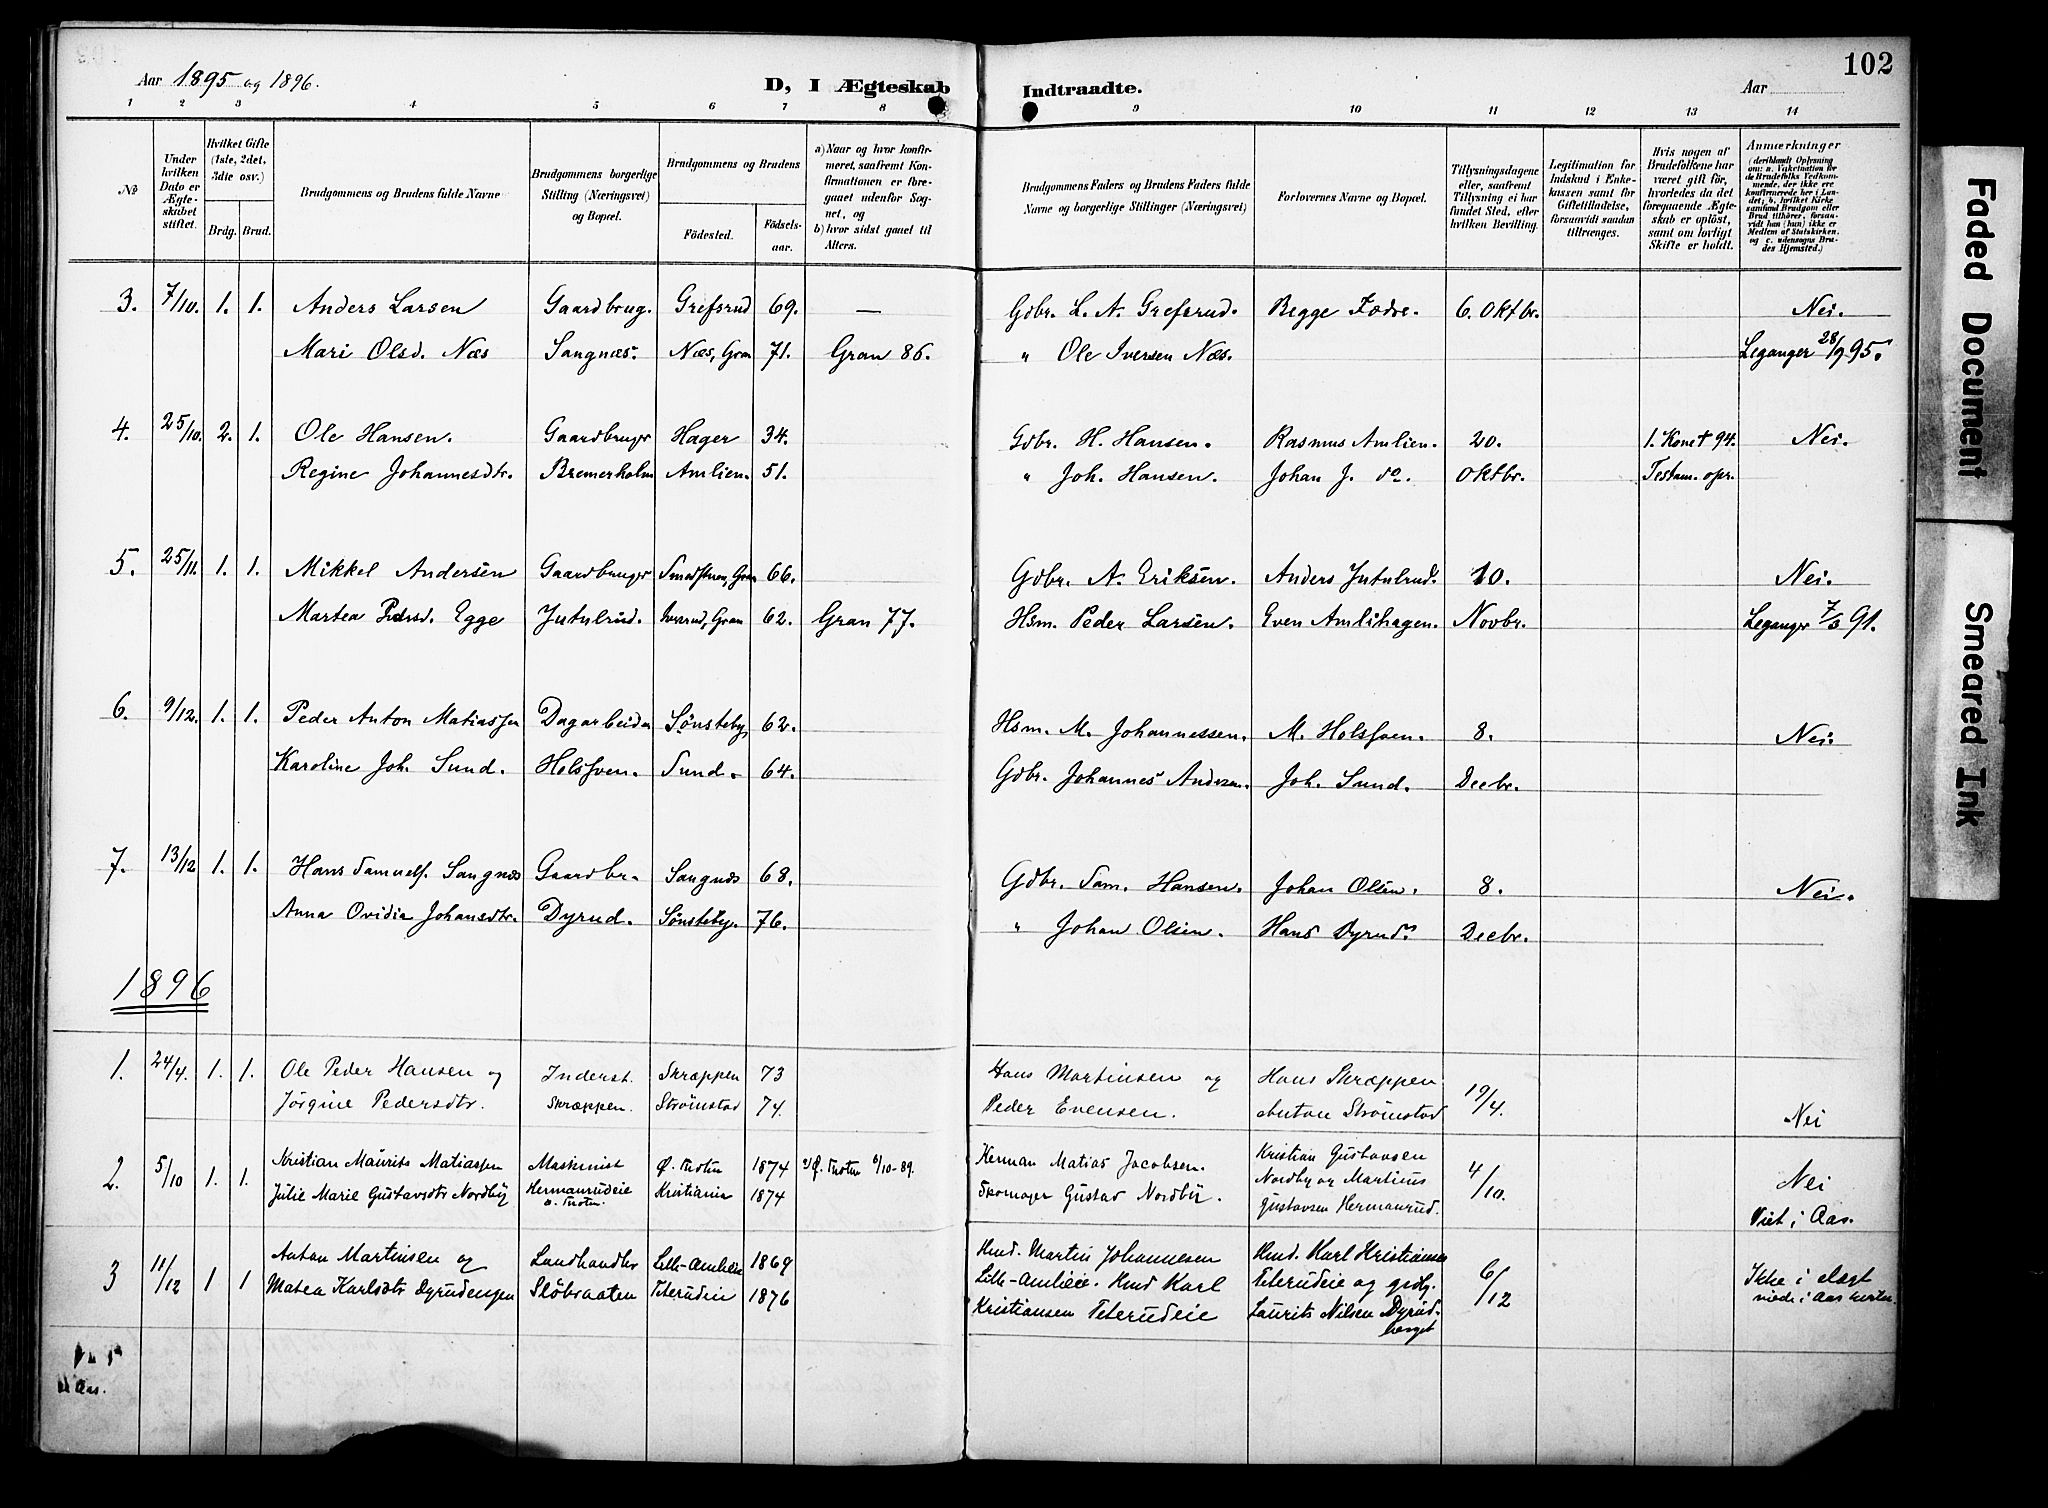 102
Aar 1895 og 1896.
D, I Ægteskab Indtraadte.
Aar
1 2 3 4 5 6 7 8 9 10 11 12 13 14
No
Under hvilken Dato er Ægteskabet stiftet.
Hvilket Gifte (1ste, 2det, 3die osv.)
Brdg. Brud.
Brudgommens og Brudens fulde Navne
Brudgommens borgerlige Stilling (Næringsvei) og Bopæl.
Brudgommens og Brudens
Fødested. Fødselsaar.
a) Naar og hvor konfirmeret, saafremt Konfirmationen er foregaaet udenfor Sognet, og
b) hvor sidst gaaet til Alters.
Brudgommens Faders og Brudens Faders fulde Navne og borgerlige Stillinger (Næringsvei)
Forlovernes Navne og Bopæl.
Tillysningsdagene eller, saafremt Tillysning ei har fundet Sted, efter hvilken Bevilling.
Legitimation for Indskud i Enkekassen samt for Giftetilladelse, forsaavidt saadan tiltrænges.
Hvis nogen af Brudefolkene har været gift før, hvorledes da det foregaaende Ægteskab er opløst, samt om lovligt Skifte er holdt.
Anmærkninger (deriblandt Oplysning om: a. Vakcination for de Brudefolks Vedkommende, der ikke ere konfirmerede her i Landet; b. hvilket Kirkesamfund Brudgom eller Brud tilhører, forsaavidt han (hun) ikke er Medlem af Statskirken, og c. udensogns Brudes Hjemsted.)
3. 7/10. 1. 1. Anders Larsen Gaardbrug. Grefsrud 69. — Gdbr. L. A. Grefsrud. Begge Fædre. 6. Oktbr. Nei.
Mari Olsd. Næs Sangnæs. Næs, Gran 71. Gran 86. " Ole Iversen Næs. Leganger 28/9 95.
4. 25/10. 2. 1. Ole Hansen. Gaardbruger Hager 34. Gdbr. H. Hansen. Rasmus Amlien. 20. 1. Kone † 94. Nei.
Regine Johannesdtr. Bremerholm Amlien. 51. " Joh. Hansen. Johan J. do. Oktbr. Testam. opr.
5. 25/11. 1. 1. Mikkel Andersen Gaardbruger Gran 66. Gdbr. A. Eriksen. Anders Jutulrud. 10. Nei.
Martea Pedersd. Egge Jutulrud. Gran 62. Gran 77. Hsm. Peder Larsen. Even Amlihagen. Novbr. Leganger 91.
6. 9/12. 1. 1. Peder Anton Matiassen Dagarbeider Sønsteby 62. Hsm. M. Johannessen. M. Holsfven. 8. Nei.
Karoline Joh. Sund. Holsfven. Sund. 64. Gdbr. Johannes Andersen. Joh. Sund. Decbr.
7. 13/12 1. 1. Hans Samuels. Sangnæs Gaardbr. Sangnæs 68. Gdbr. Sam. Hansen. Johan Olsen. 8. Nei.
Anna Ovidia Johansdtr. Dyrud. Sønsteby. 76. " Johan Olsen. Hans Dyrud. Decbr.
1896
1. 24/4. 1. 1. Ole Peder Hansen og Inderst. Skræppen 73 Hans Martinsen og Hans Skræppen 19/4.
Jørgine Pedersdtr. Skræppen. Strømstad 74. Peder Evensen. Anton Strømstad Nei
2. 5/10 1. 1. Kristian Maurits Matiassen Maskinist Ø. Thoten 1874 Ø. Thoten 6/10-89. Herman Matias Jacobsen. Kristian Gustavsen 4/10. Nei
Julie Marie Gustavsdtr Nordby Hermanrudeie Ø. Thoten. Kristiania 1874 Skomager Gustav Nordby. Nordby og Martinus
Gustavsen Hermanrud. Viet i Aas.
3 11/12 1 1 Anton Martinsen og Landhandler Lille-Amlieie 1869 Hmd. Martin Johannesen Hmd. Karl Kristiansen 6/12 Ikke i slægt
Matea Karlsdtr Dyrudengen Sløbraaten Teterudeie 1876 Lille-Amlieie. Hmd Karl Teterudeie og grdbr. viede i Aas kirke.
Kristiansen Teterudeie Laurits Nilsen Dyrud-
berget
Aas.
Faded Document
Smeared Ink